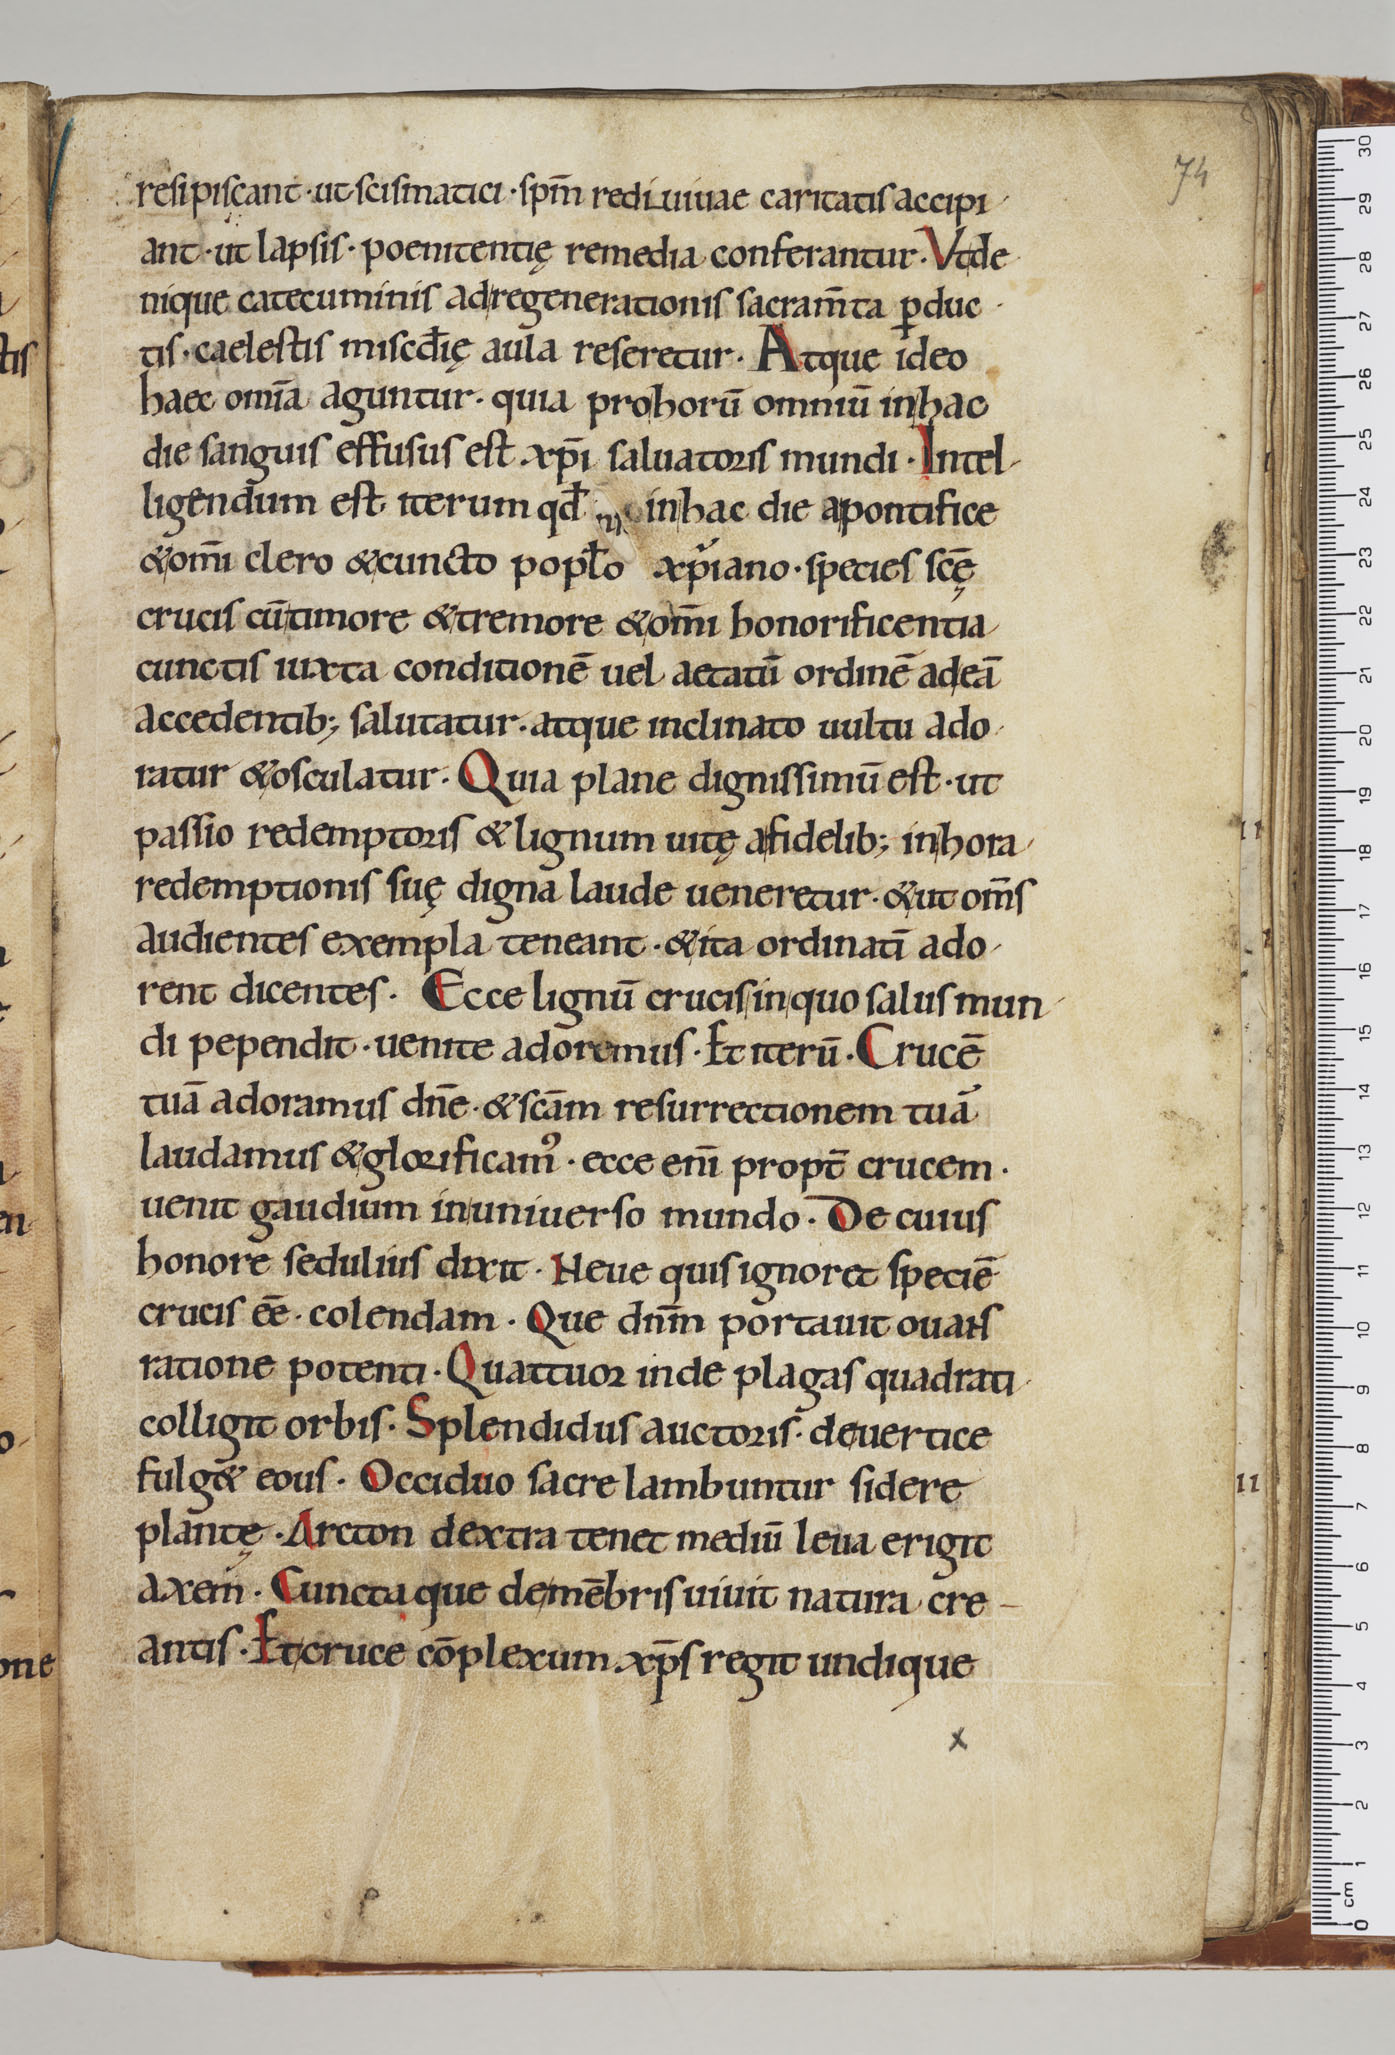 74
resipiscant · ut scismatici · sp̄m rediuiuae caritatis accipi
ant · ut lapsis · poenitentię remedia conferantur · Vt de
nique catecuminis ad regenerationis sacram̄ta ꝑduc
tis · caelestis misc̄dię aula reseretur · Atque ideo
haec om̄ia aguntur · quia pro horū omniū in hac
die sanguis effusus est xp̄i saluatoris mundi · Intel
ligendum est iterum qđ in hac die a pontifice
& om̄i clero & cuncto popłо xp̄iano · species sc̄ę
crucis cū timore & tremore & om̄i honorificentia
cunctis iuxta conditionē uel aetatū ordinē ad eā
accedentib; salutatur · atque inclinato uultu ado
ratur & osculatur · Quia plane dignissimū est · ut
passio redemptoris & lignum uitę a fidelib; in hora
redemptionis suę digna laude ueneretur · & ut om̄s
audientes exempla teneant · & ita ordinatī ado
rent dicentes · Ecce lignū crucis in quo salus mun
di pependit · uenite adoremus · Et iterū · Crucē
tuā adoramus dn̄e · & scām resurrectionem tuā
laudamus & glorificam᷒ · ecce en̄i propt̄ crucem ·
uenit gaudium in uniuerso mundo · De cuius
honore sedulius dixit · Neue quis ignoret speciē
crucis eē · colendam · Que dn̄m portauit ouans
ratione potenti · Quattuor inde plagas quadrati
colligit orbis · Splendidus auctoris · de uertice
fulg& eous · Occiduo sacre lambuntur sidere
plāntę · Arcton dextra tenet mediū leua erigit
axem · Cunctaque de mēbris uiuit natura cre
antis · Et cruce cōplexum xp̄s regit undique
x